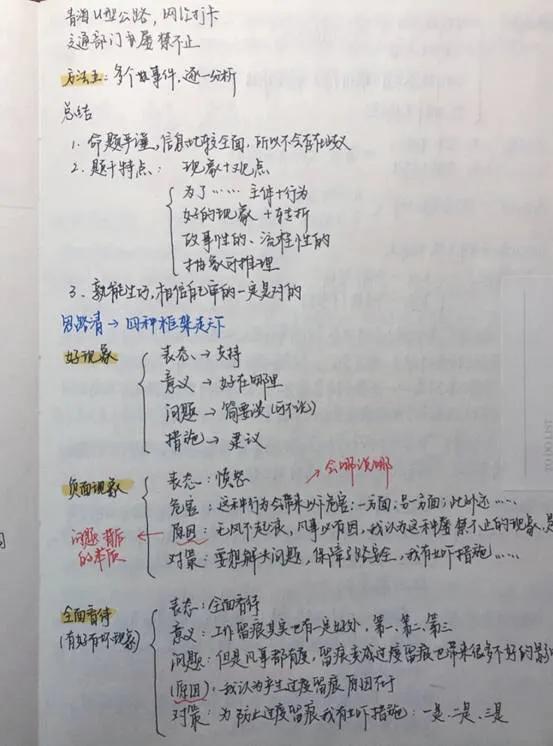 青海U型公路,网红打卡
交通部门屡禁不止
方法五:多个故事件,逐一分析
总结
1. 命题严谨,信息比较全面,所以不会有歧义
2. 题干特点: 现象+观点
为了…… 主体+行为
好的现象 + 转折
故事性的、流程性的
抽象对推理
3. 熟能生巧,相信自己审的一定是对的
思路清→四种框架走下
好现象
表态→支持
意义→好在哪里
问题→简要谈(可不说)
措施→建议
负面现象
表态:愤怒
→会哪说哪
危害:这种行为会带来以下危害:一方面;另一方面;此外还……
问题背后的本质
原因:无风不起浪,凡事必有因,我认为这种屡禁不止的现象,是
对策:要想解决问题,保障道路安全,我有以下措施……
全面看待
(有好有坏现象)
表态:全面看待
意义:工作留痕其实也有一定好处,第一、第二、第三
问题:但是凡事都有度,留痕变成过度留痕也带来很多不好的影响
(原因):我认为产生过度留痕原因在于
对策:为防止过度留痕我有以下措施:一是、二是、三是